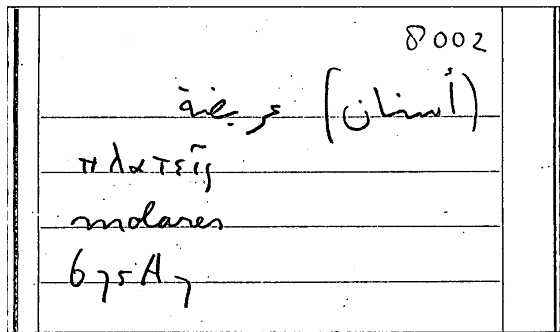 8002
(أسنان) عريضة
πλατεῖς
molares
675A7